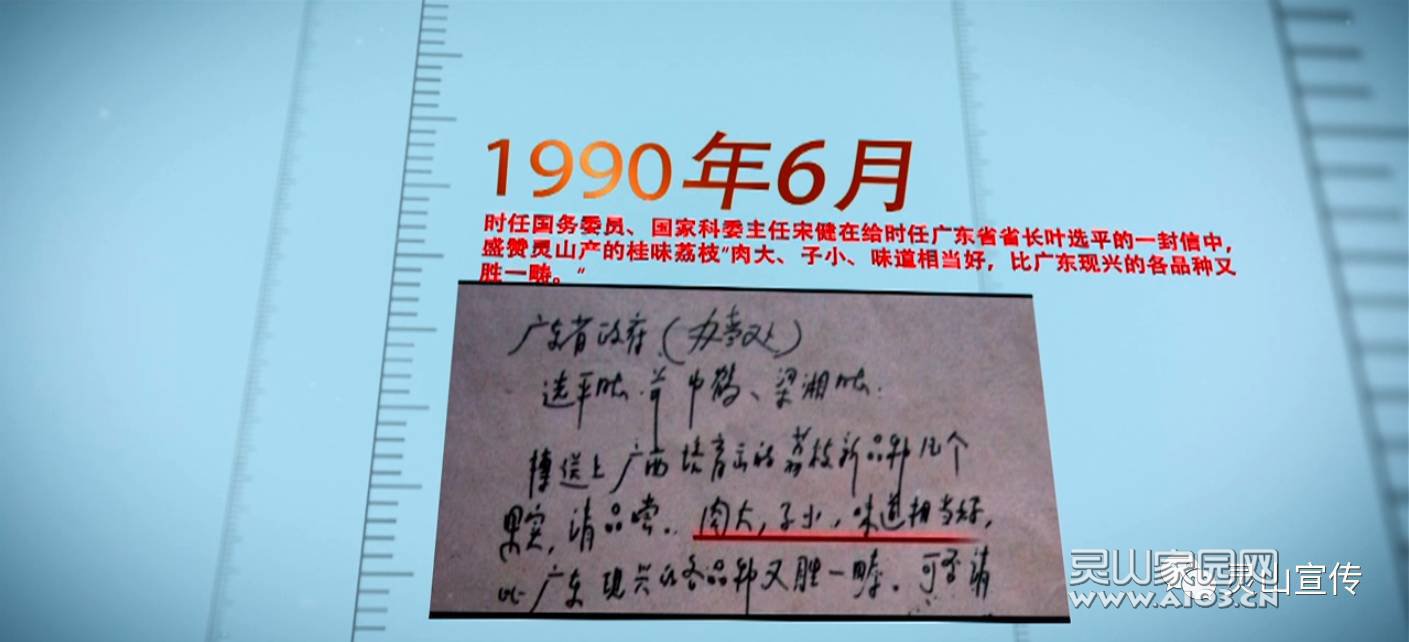 1990年6月
时任国务委员、国家科委主任宋健在给时任广东省省长叶选平的一封信中，
盛赞灵山产的桂味荔枝“肉大、子小、味道相当好，比广东现兴的各品种又
胜一畴。“
广东省政府（办事处）
选平
梁湘
送上广西培育出的荔枝新品种几个
果实，请品尝。肉大，子小，味道相当好，
比广东现兴的各品种又胜一畴。可否请
灵山家园网
www.A103.CN
灵山宣传